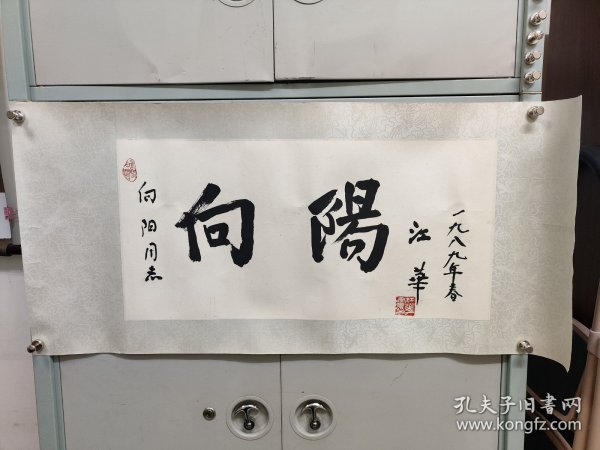 向阳同志
向陽
一九八九年春
江華
孔夫子旧書网
www.kongfz.com